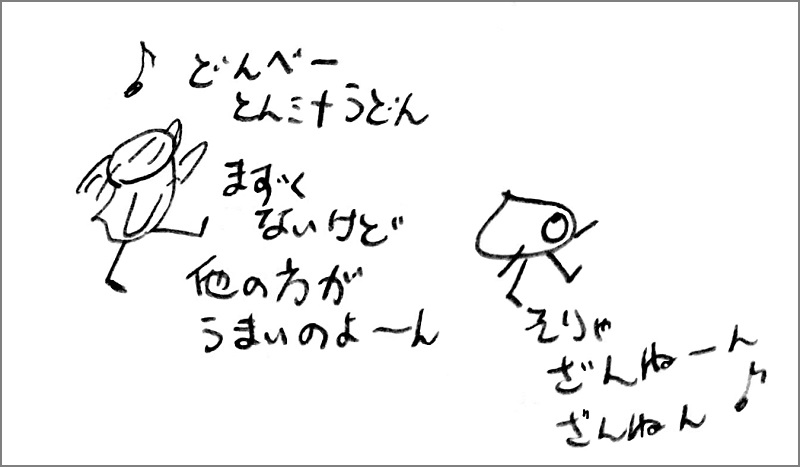 どんべー
とん汁うどん
まずく
ないけど
他の方が
うまいのよ〜ん
そりゃ
ざんねーん
ざんねん